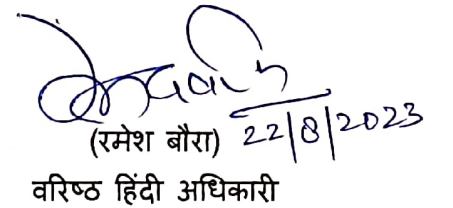 (रमेश बौरा) 22/8/2023
वरिष्ठ हिंदी अधिकारी